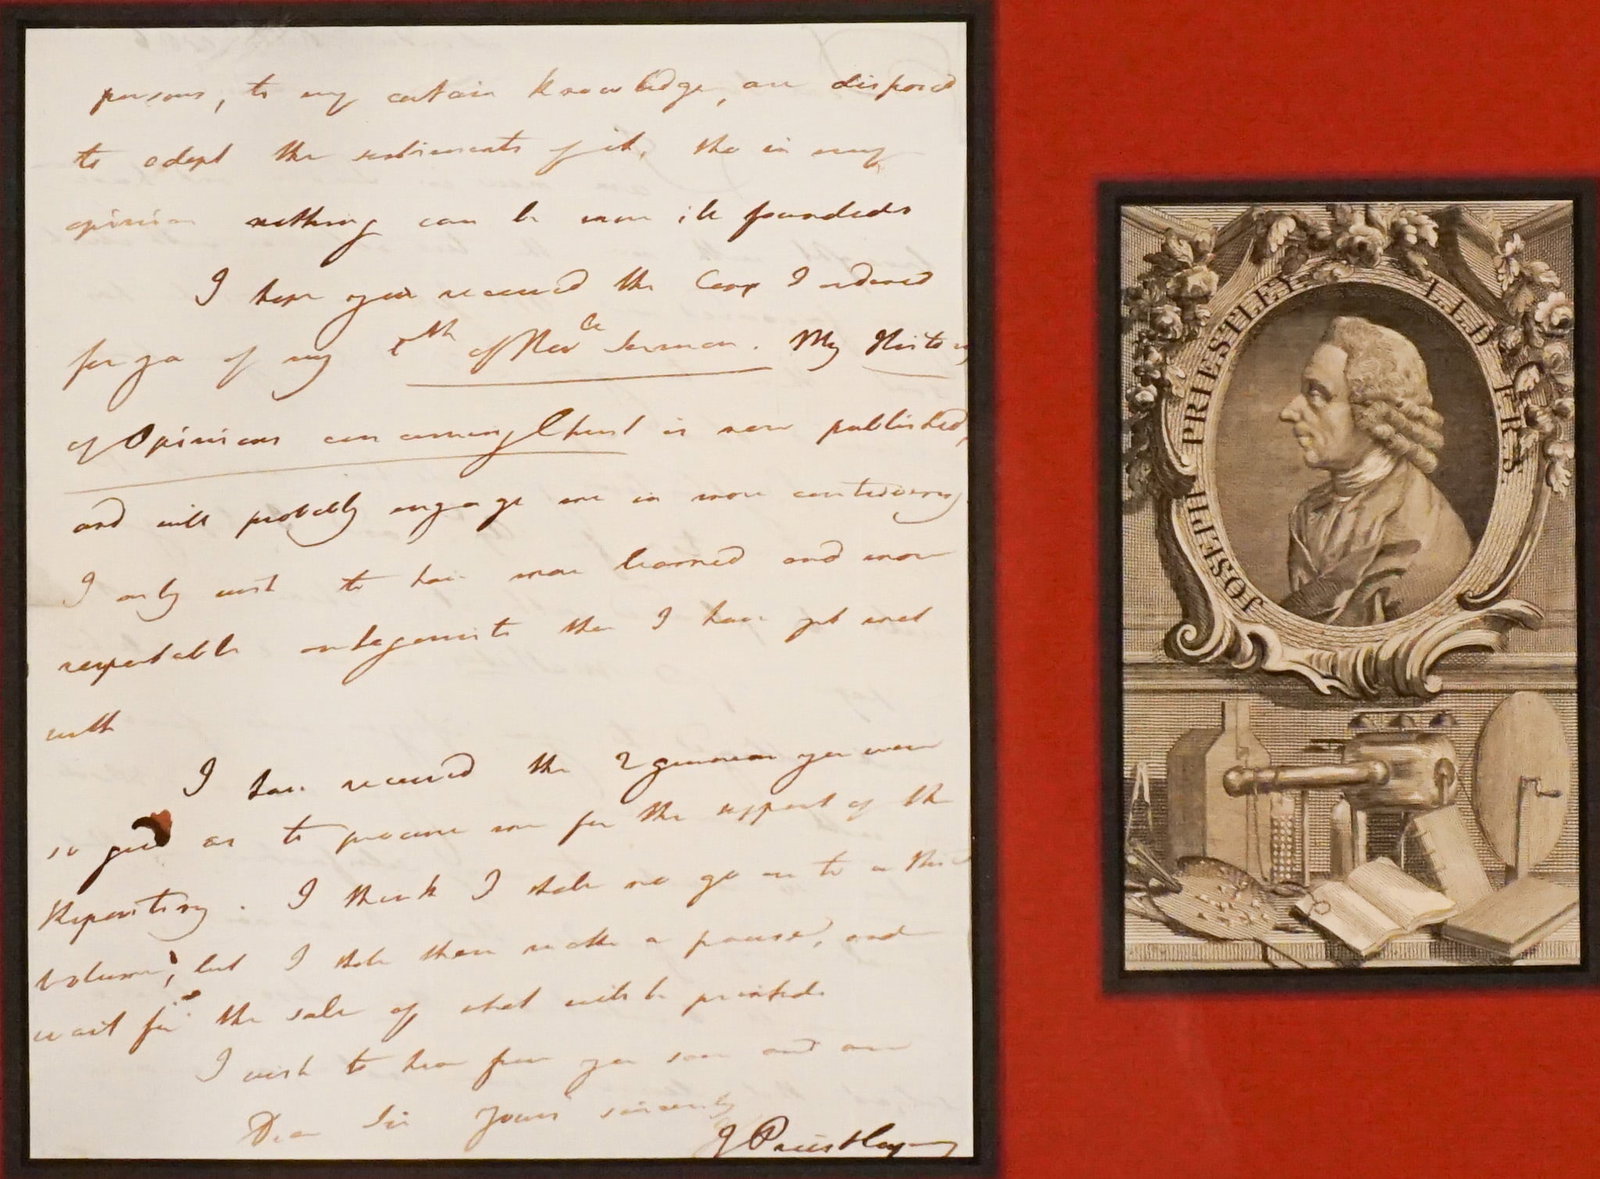 persons, to my certain knowledge, are disposed
to adopt the sentiments of it, tho in my
opinion nothing can be more ill founded.
I hope you received the Copy I ordered
for you of my 5th of Novr Sermon. My History
of Opinions concerning Christ is now published,
and will probably engage me in more controversy.
I only wish to have more learned and more
respectable antagonists than I have yet met
with
I have received the 2 guineas you were
so good as to procure me for the support of the
Repository. I think I shall no go on to a third
volume, but I shall then make a pause, and
wait for the sale of what will be printed.
I wish to hear from you soon and am
Dear Sir Yours sincerely
J Priestley
JOSEPH PRIESTLEY L.L.D. F.R.S.